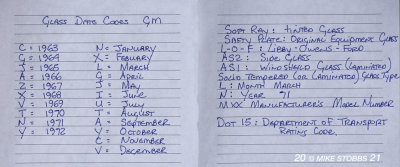 GLASS DATE CODES GM
C = 1963 N = JANUARY
G = 1964 X = FEBUARY
J = 1965 L = MARCH
A = 1966 G = APRIL
Z = 1967 J = MAY
X = 1968 I = JUNE
V = 1969 U = JULY
T = 1970 T = AUGUST
N = 1971 A = SEPTEMBER
Y = 1972 Y = OCTOBER
C = NOVEMBER
V = DECEMBER
SOFT RAY: TINTED GLASS
SAFTY PLATE: ORIGINAL EQUIPMENT GLASS
L-O-F: LIBBY-OWENS-FORD
AS2: SIDE GLASS
AS1: WINDSHIELD GLASS (LAMINATED)
SOLID TEMPERED (OR LAMINATED) GLASS TYPE
L: MONTH MARCH
N: YEAR 71
MXX MANUFACTURER'S MODEL NUMBER
DOT 15: DEPARTMENT OF TRANSPORT
RATING CODE.
20 © MIKE STOBBS 21